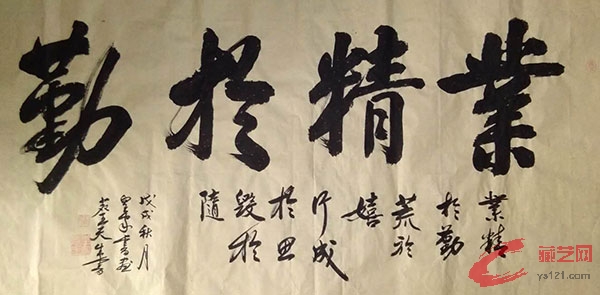 業精於勤
業精
於勤
荒於
嬉
行成
於思
毀於
隨
戊戌秋月
藏艺网
ys121.com